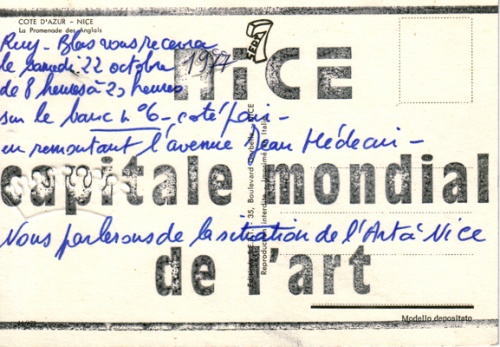 COTE D'AZUR - NICE
La Promenade des Anglais
Ruy-Blas vous recevra
le samedi 22 octobre 1977
de 8 heures à 20 heures
sur le banc n°6 - coté pair -
en remontant l'avenue Jean Médecin -
NICE
capitale mondial
de l'art
Nous parlerons de la situation de l'Art à Nice
35, Boulevard
Modello depositato